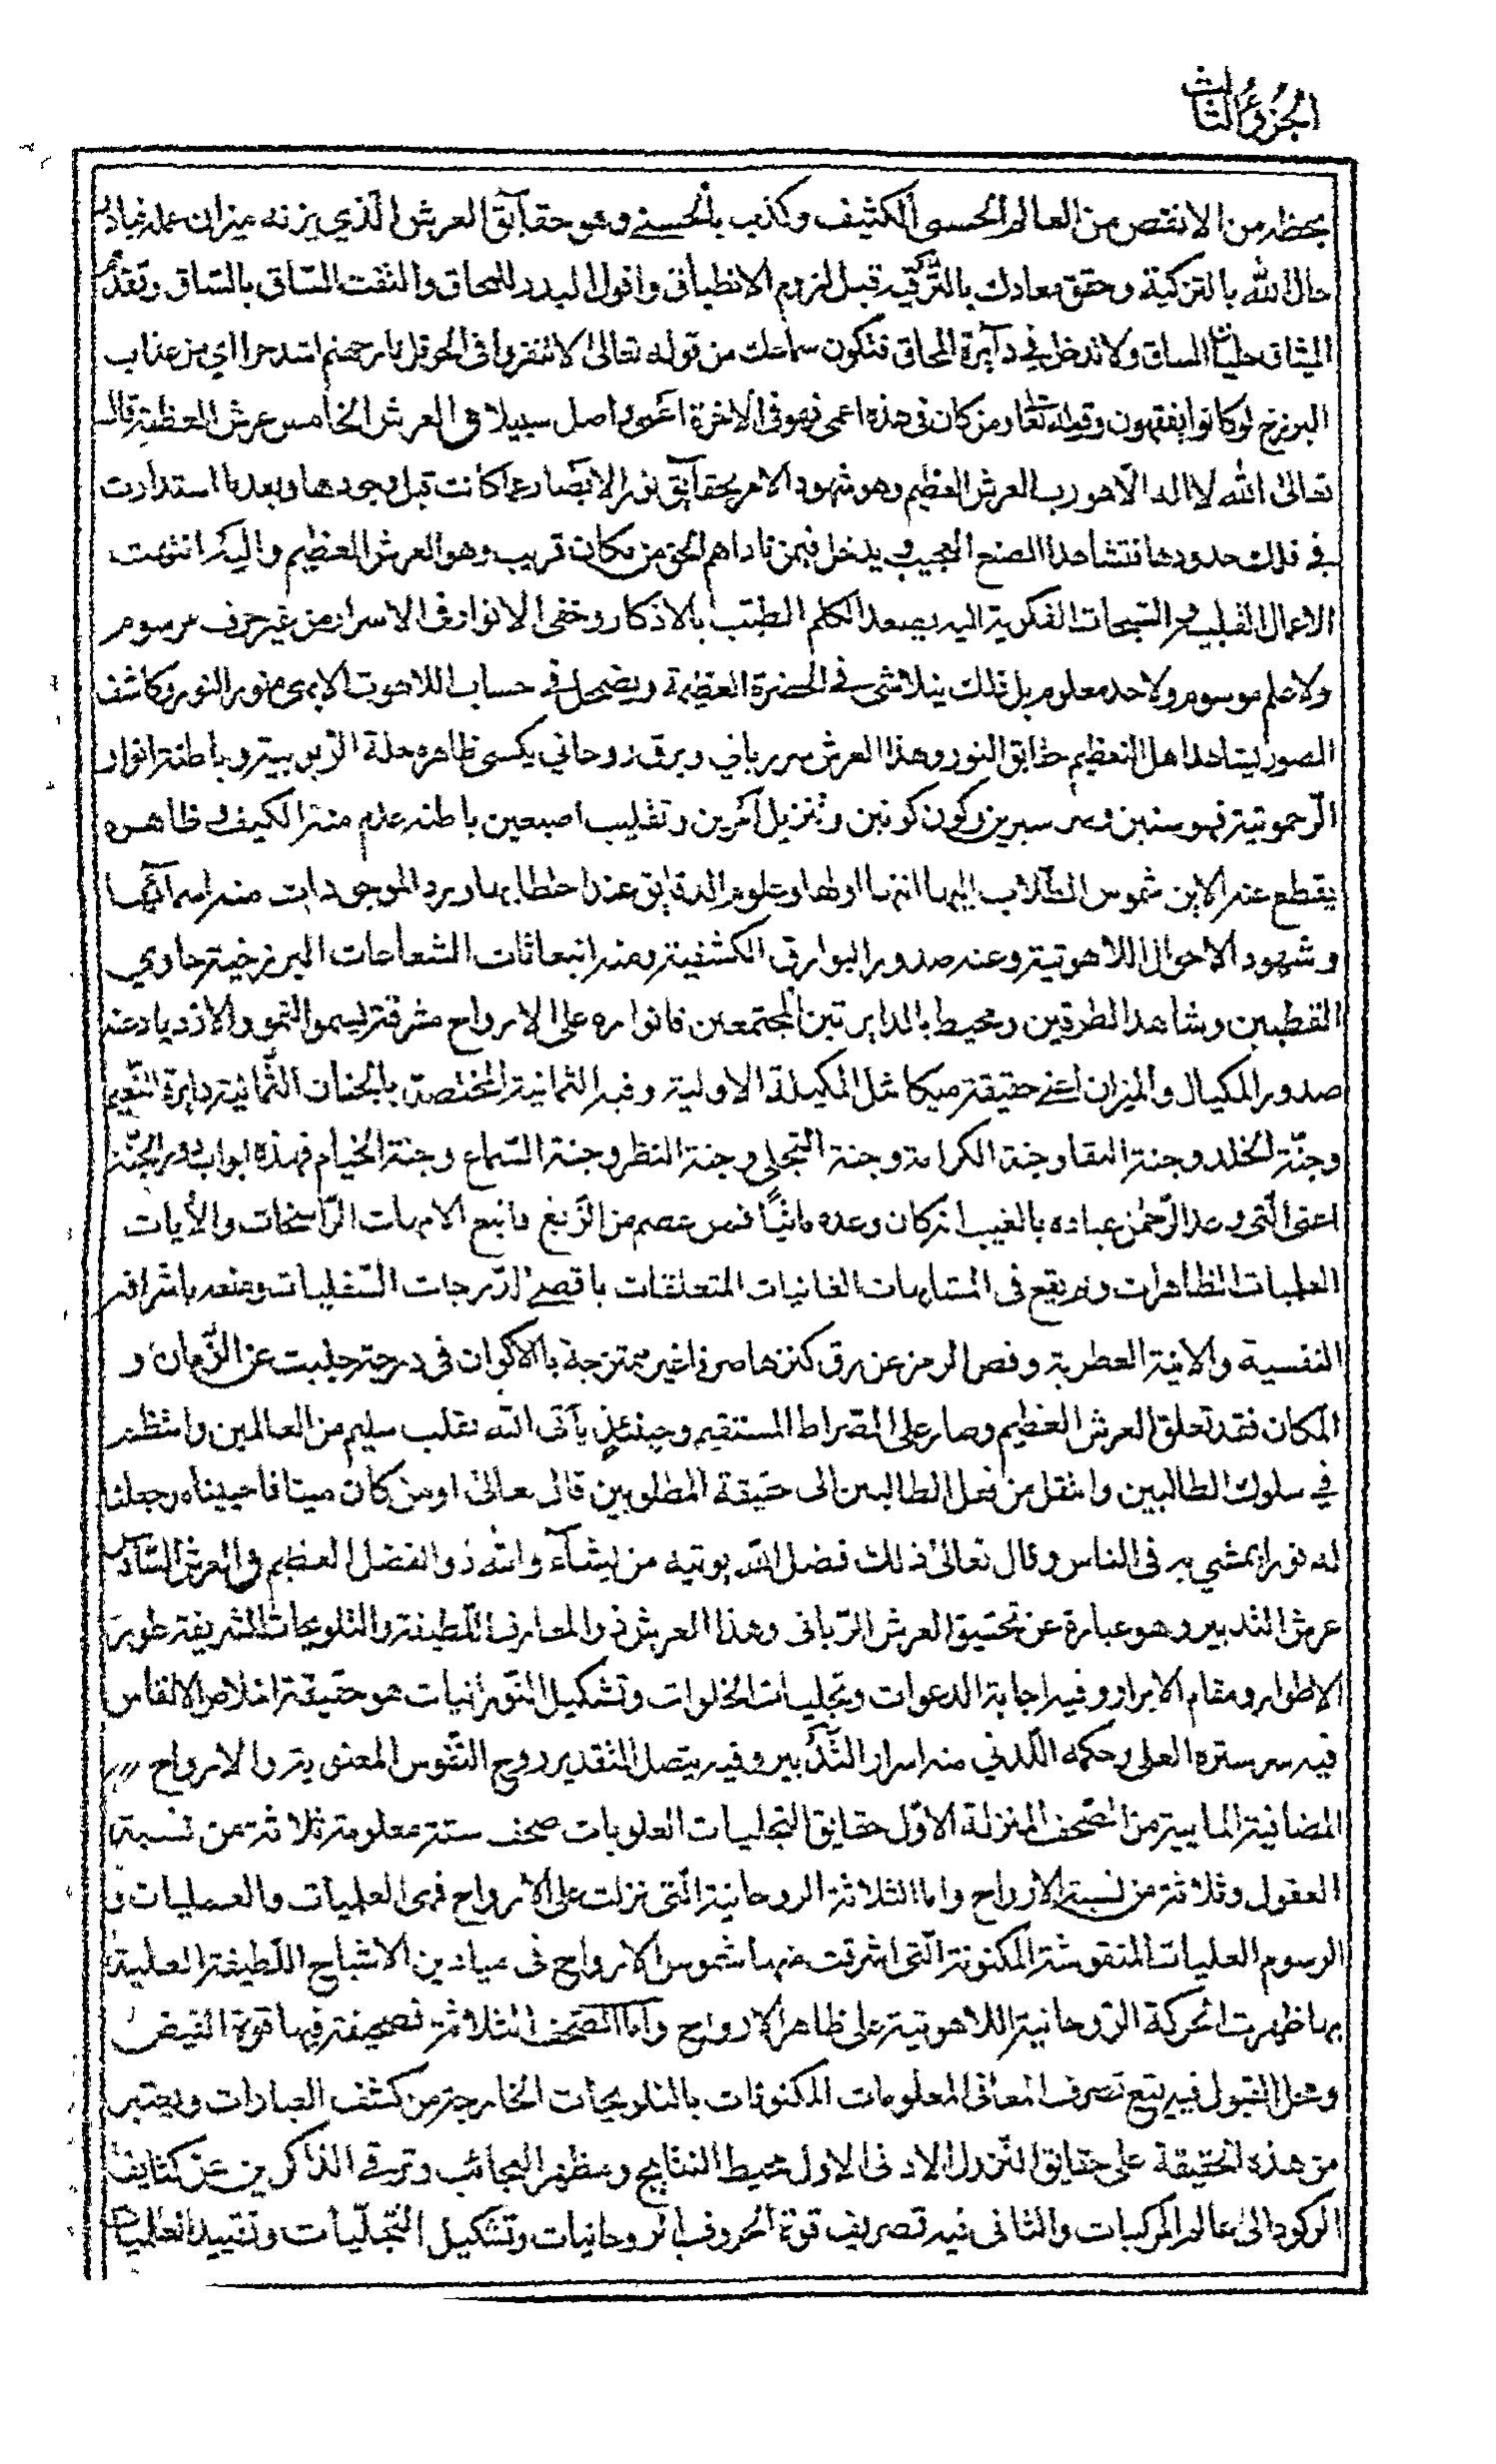 الجزؤ الثالث
بحظه من الانقص من العالم الحسى الكثيف وكذب بالحسنے وهو حقآئق العرش الّذي يزنه ميزان عمله فبادر
حال الله بالتزكية وحقق معادك بالترقى قبل لزوم الانطباق وافول البدر للمحاق والتفت السّاق بالسّاق وتقدم
الميثاق المساق ولا تدخل في دآئرة المحاق فتكون سماعك من قوله تعالىٰ لا تنفروا فى الحر قل نار جهنم اشد حرا اي من عذاب
البرزخ لو كانوا يفقهون وقوله تعا ومن كان فى هذه اعمى فهو فى الاٰخرة اعمىٰ واضل سبيلا فى العرش الخامس عرش العظمة قال
تعالىٰ الله لا اله الّا هو رب العرش العظيم وهو شهود الامر بحقآئق نور الابصار عما كانت قبل وجودها وبعد ما استدارت
في فلك حدودها فتشاهد الصنع العجيب ويدخل فيمن ناداهم الحق من مكان قريب وهو العرش العظيم واليه انتهت
الاعمال القلبية والتسبيحات الفكرية اليه يصعد الكلم الطيّب بالاذكار وخفى الانوار فى الاسرار من غير حرف مرسوم
ولا علم موسوم ولا حد معلوم بل ذلك يتلاشى في الحضرة العظيمة ويضمحل في حساب اللاهوت الابدى منور النور وكاشف
الصور يشاهد اهل التعظيم حقايق النور وهذا العرش سر رباني وبرق روحاني يكسى ظاهره حلة الربوبية وباطنه انوار
الرّحموتية فهو سنين وسر سيرين وكون كونين وتنزيل آخرين وتقليب اصبعين باطنه عدم منه الكيف وظاهره
يقطع عنه الاين شموس الطّلاب اليها انتها اولها وعلوم الدقايق عند احطابها ويرد الموجودات منه اسمآئها
وشهود الاحوال اللاهوتية وعند صدور البوارق الكشفية ومنه انبعاثات الشعاعات البرزخية حاوي
القطبين وشاهد الطرفين ومحيط بالدايرتين المجتمعين فانواره على الارواح مشرقة ليسمو النمو والازدياد عند
صدور المكيال والميزان اعنے حقيقة ميكائيل المكيلة الاولية وفيه الثمانية المختصة بالجنان الثّمانية دايرة النّعيم
وجنّة الخلد وجنة البقا وجنة الكرامة وجنة التجلى وجنة النظر وجنة السّماع وجنة الخيام فهذه ابواب دور الجنّة
اعنى الّتى وعد الرّحمٰن عباده بالغيب انه كان وعده ماتيّا فمن عصم من الزّيغ فاتبع الامهات الرّاسخات والأيات
العليات الظاهرات ولم يقع فى المتشابهات الفانيات المتعلقات باقصے الدّرجات السّفليات ومنعه باشراف
النفسية والانية العطرية وفص الرمز عن رق كنزها صرفا غير ممتزجة بالاكوان فى درجة جليت عن الزّمان و
المكان فقد تعلق العرش العظيم وصار على الصّراط المستقيم وحينئذٍ يأتى الله بقلب سليم من العالمين وانتظم
في سلوك الطالبين وانتقل من فعل الطالبين الى حقيقة المطلوبين قال تعالىٰ او من كان ميتا فاحييناه وجعلنا
له نورا يمشي به فى الناس وقال تعالىٰ ذلك فضل الله يوتيه من يشآء والله ذو الفضل العظيم فى العرش السّآدس
عرش التدبير وهو عبارة عن تحقيق العرش الرّبانى وهذا العرش ذو المعارف اللّطيفة والتلويحات الشريفة طور
الاطوار ومقام الابرار وفيه اجابة الدعوات وتجليات الخلوات وتشكيل النّورانيات هو حقيقة اخلاص الانفاس
فيه سر ستره العلى وحكمه اللّدني منه اسرار التّدبير وفيه يتصل التقدير روح النّفوس المعنوية والارواح
المضافية المايية من الصّحف المنزلة الاوّل حقايق التجليات العلويات صحف ستة معلومة ثلاثة من نسبة
العقول وثلاثة من نسبة الارواح واما الثلاثة الروحانية الّتى نزلت على الارواح فهى العلميات والعمليات و
الرسوم العليات المنقوشة المكنونة الّتى اشرقت منها شموس الارواح فى ميادين الاشباح اللّطيفة العلية
بها ظهرت الحركة الرّوحانية اللاهوتية على ظاهر الارواح واما الصّحف الثلاثة فصحيفة فيها قوة الفيض
ومحل القبول فيه يتبع تصرف المعانى المعلومات المكنونات بالتلويحات الخارجة من كشف العبارات ويعتبر
من هذه الحقيقة على حقايق التّنزل الاد فى الاول محيط النتايج ومظهر العجائب وترقے الذاكرين عن كثايف
الركود الىٰ عالم المركبات والثانى فيه تصريف قوة الحروف الروحانيات وتشكيل التّجلّيات وتقييد العلميات